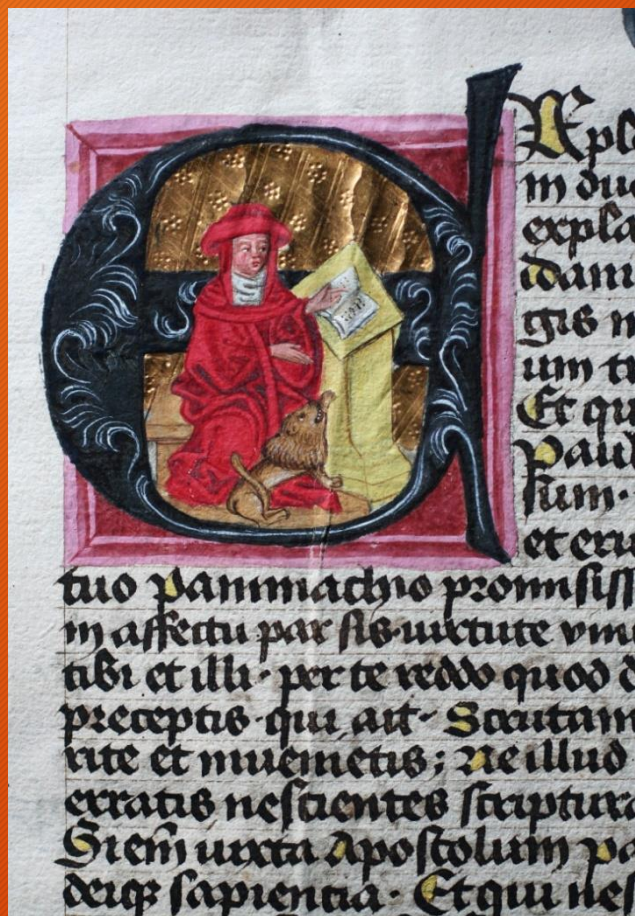 E Xple
in duo
expla
dani
gis m
um tr
Et qu
Paul
sum·
et eru
tuo pammachio promisiss
in affectu par sis uirtute vin
tibi et illi· per te reddo quod d
preceptis· qui ait· Scrutam
rite et inuenietis; Ne illud
erratis nescientes scriptura
Si em̄ iuxta Apostolum pa
deiqꝫ sapiencia· Et qui nes